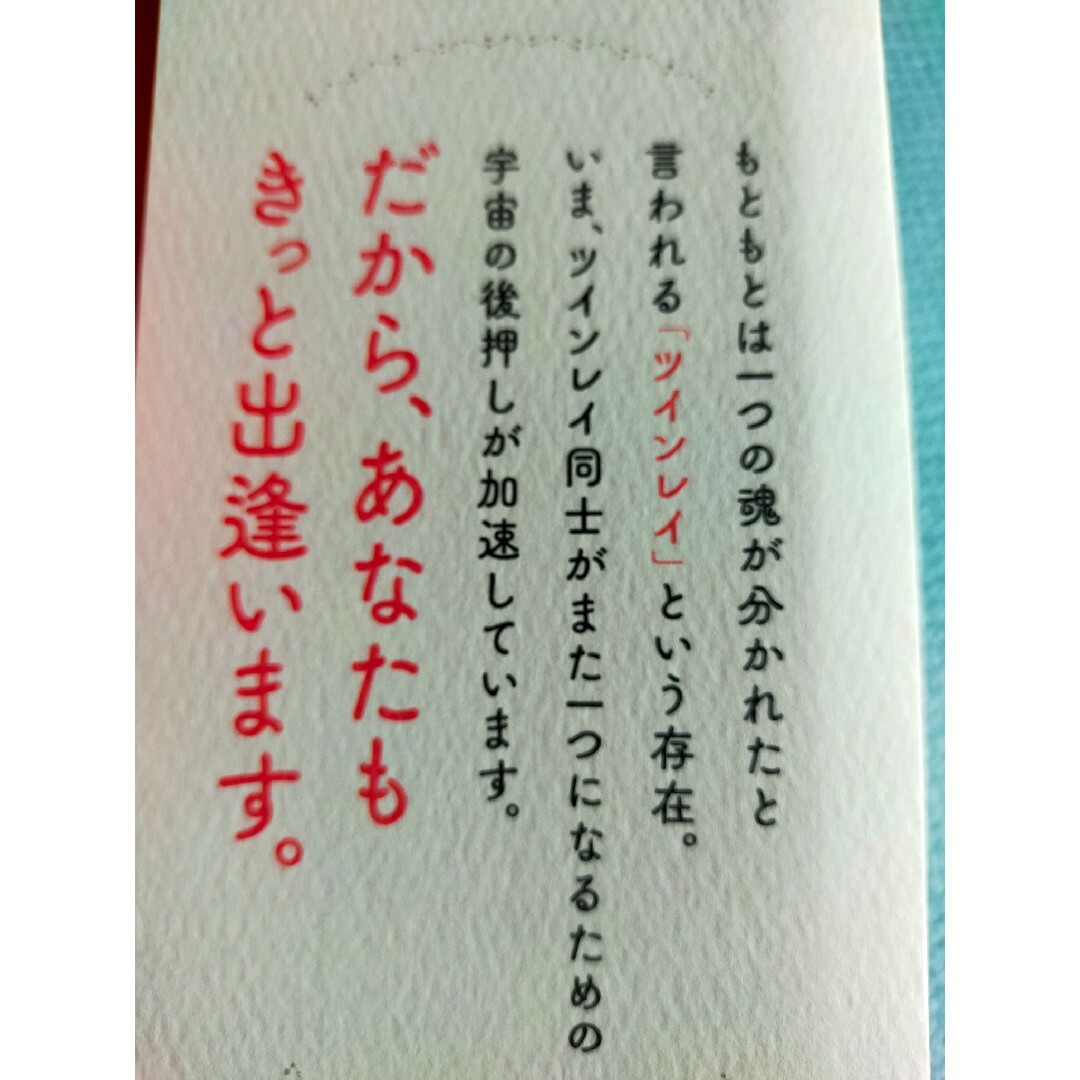 もともとは一つの魂が分かれたと
言われる「ツインレイ」という存在。
いま、ツインレイ同士がまた一つになるための
宇宙の後押しが加速しています。
だから、あなたも
きっと出逢います。